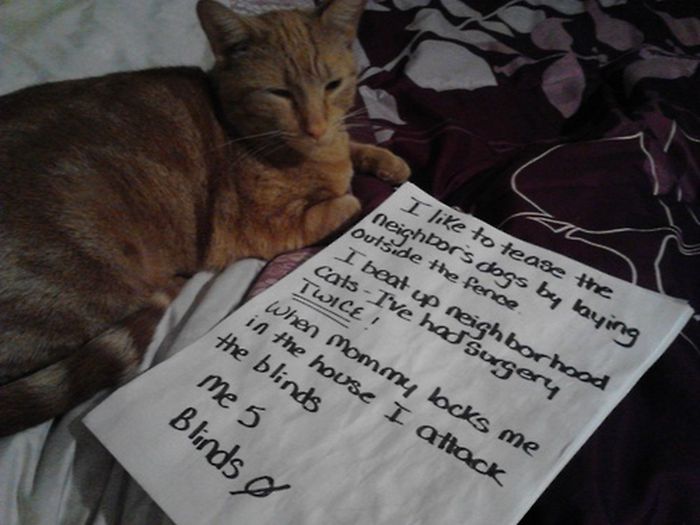 I like to tease the
neighbor's dogs by laying
outside the fence.
I beat up neighborhood
cats - I've had surgery
TWICE!
When mommy locks me
in the house I attack
the blinds
me 5
Blinds Ø